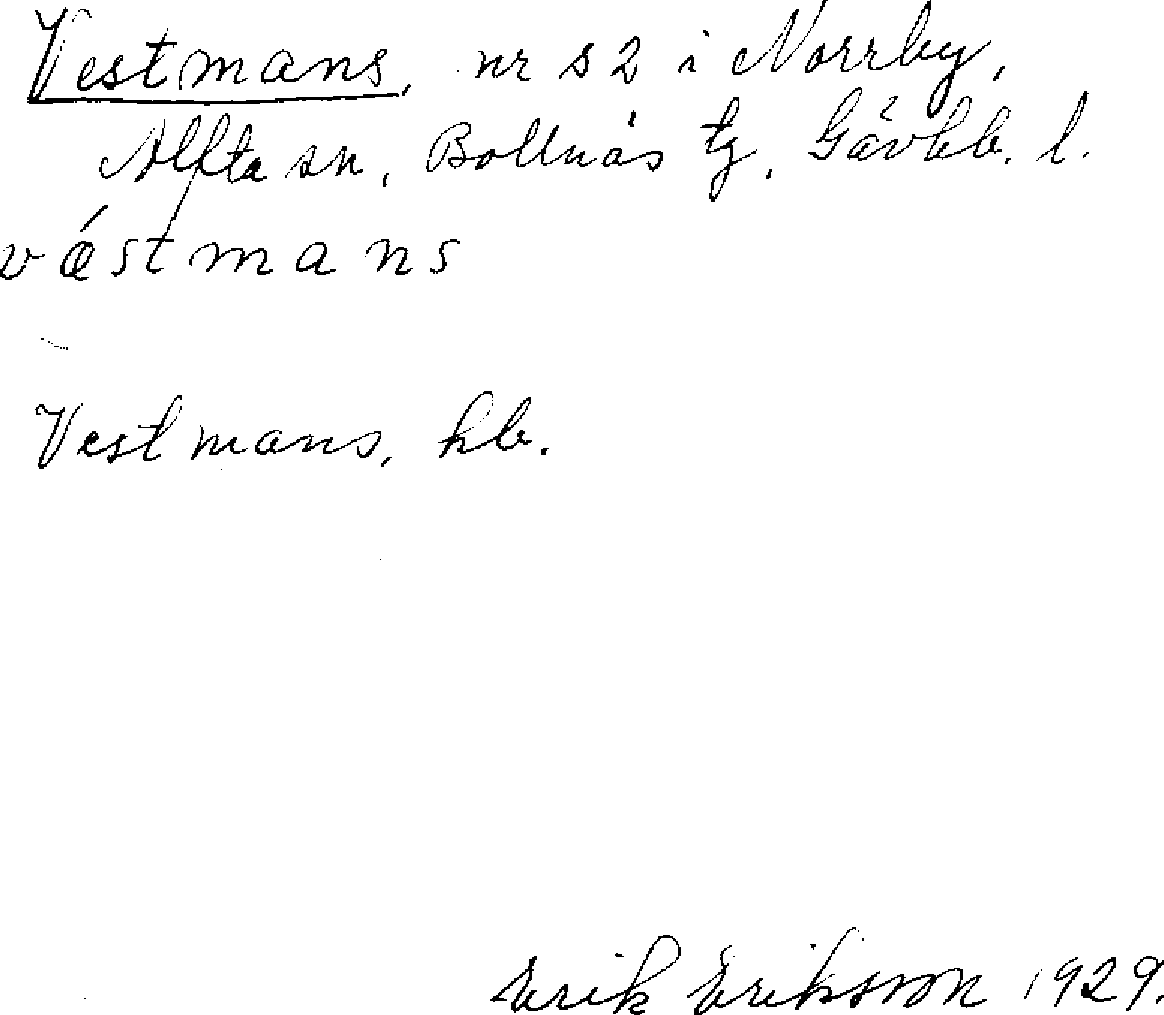 Vestmans, nr s2 i Norrby,
Alfta sn, Bollnäs tg, Gävlb. l.
vǽstmans
Vestmans, hb.
Erik Eriksson 1929.